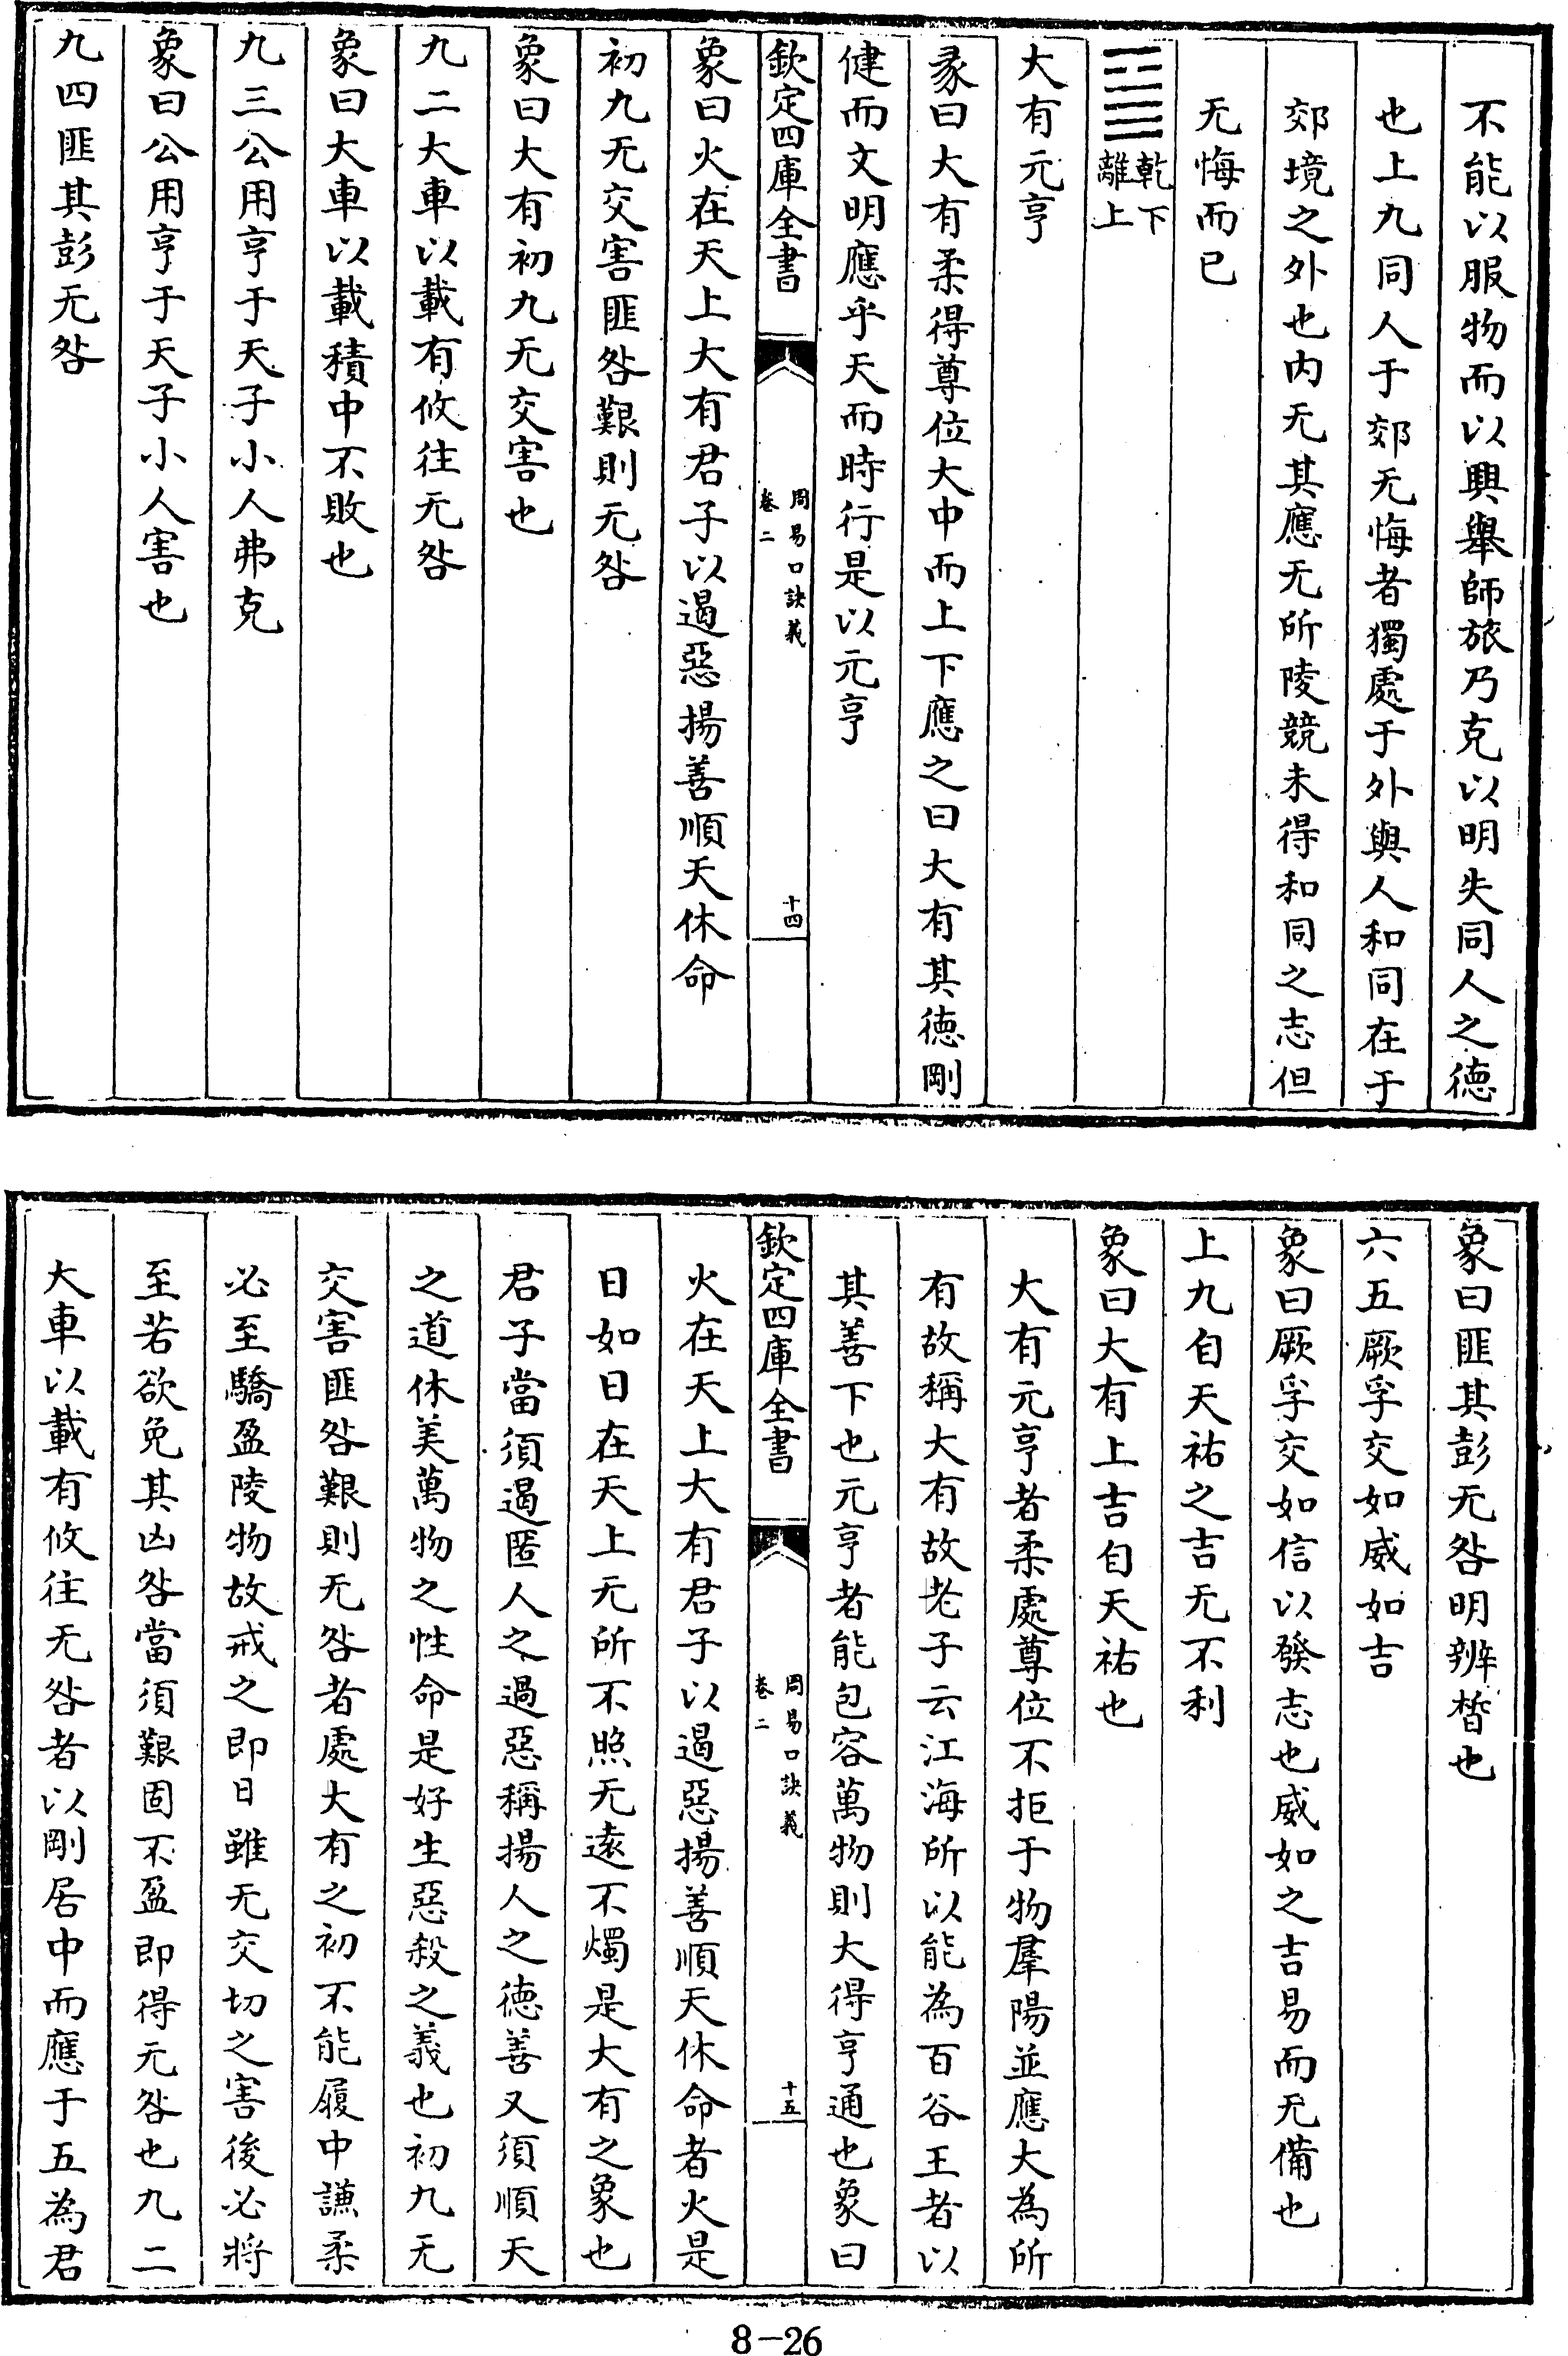 不能以服物而以興舉師旅乃克以明失同人之德
也上九同人于郊无悔者獨處于外與人和同在于
郊境之外也内无其應无所陵競未得和同之志但
无悔而已
䷍乾下離上
大有元亨
彖曰大有柔得尊位大中而上下應之曰大有其德剛
健而文明應乎天而時行是以元亨
欽定四庫全書
周易口訣義
卷二
十四
象曰火在天上大有君子以遏惡揚善順天休命
初九无交害匪咎艱則无咎
象曰大有初九无交害也
九二大車以載有攸往无咎
象曰大車以載積中不敗也
九三公用亨于天子小人弗克
象曰公用亨于天子小人害也
九四匪其彭无咎
象曰匪其彭无咎明辨晳也
六五厥孚交如威如吉
象曰厥孚交如信以發志也威如之吉易而无備也
上九自天祐之吉无不利
象曰大有上吉自天祐也
大有元亨者柔處尊位不拒于物羣陽並應大為所
有故稱大有故老子云江海所以能為百谷王者以
其善下也元亨者能包容萬物則大得亨通也象曰
欽定四庫全書
周易口訣義
卷二
十五
火在天上大有君子以遏惡揚善順天休命者火是
日如日在天上无所不照无遠不燭是大有之象也
君子當須遏匿人之過惡稱揚人之德善又須順天
之道休美萬物之性命是好生惡殺之義也初九无
交害匪咎艱則无咎者處大有之初不能履中謙柔
必至驕盈陵物故戒之即日雖无交切之害後必將
至若欲免其凶咎當須艱固不盈即得无咎也九二
大車以載有攸往无咎者以剛居中而應于五為君
8-26